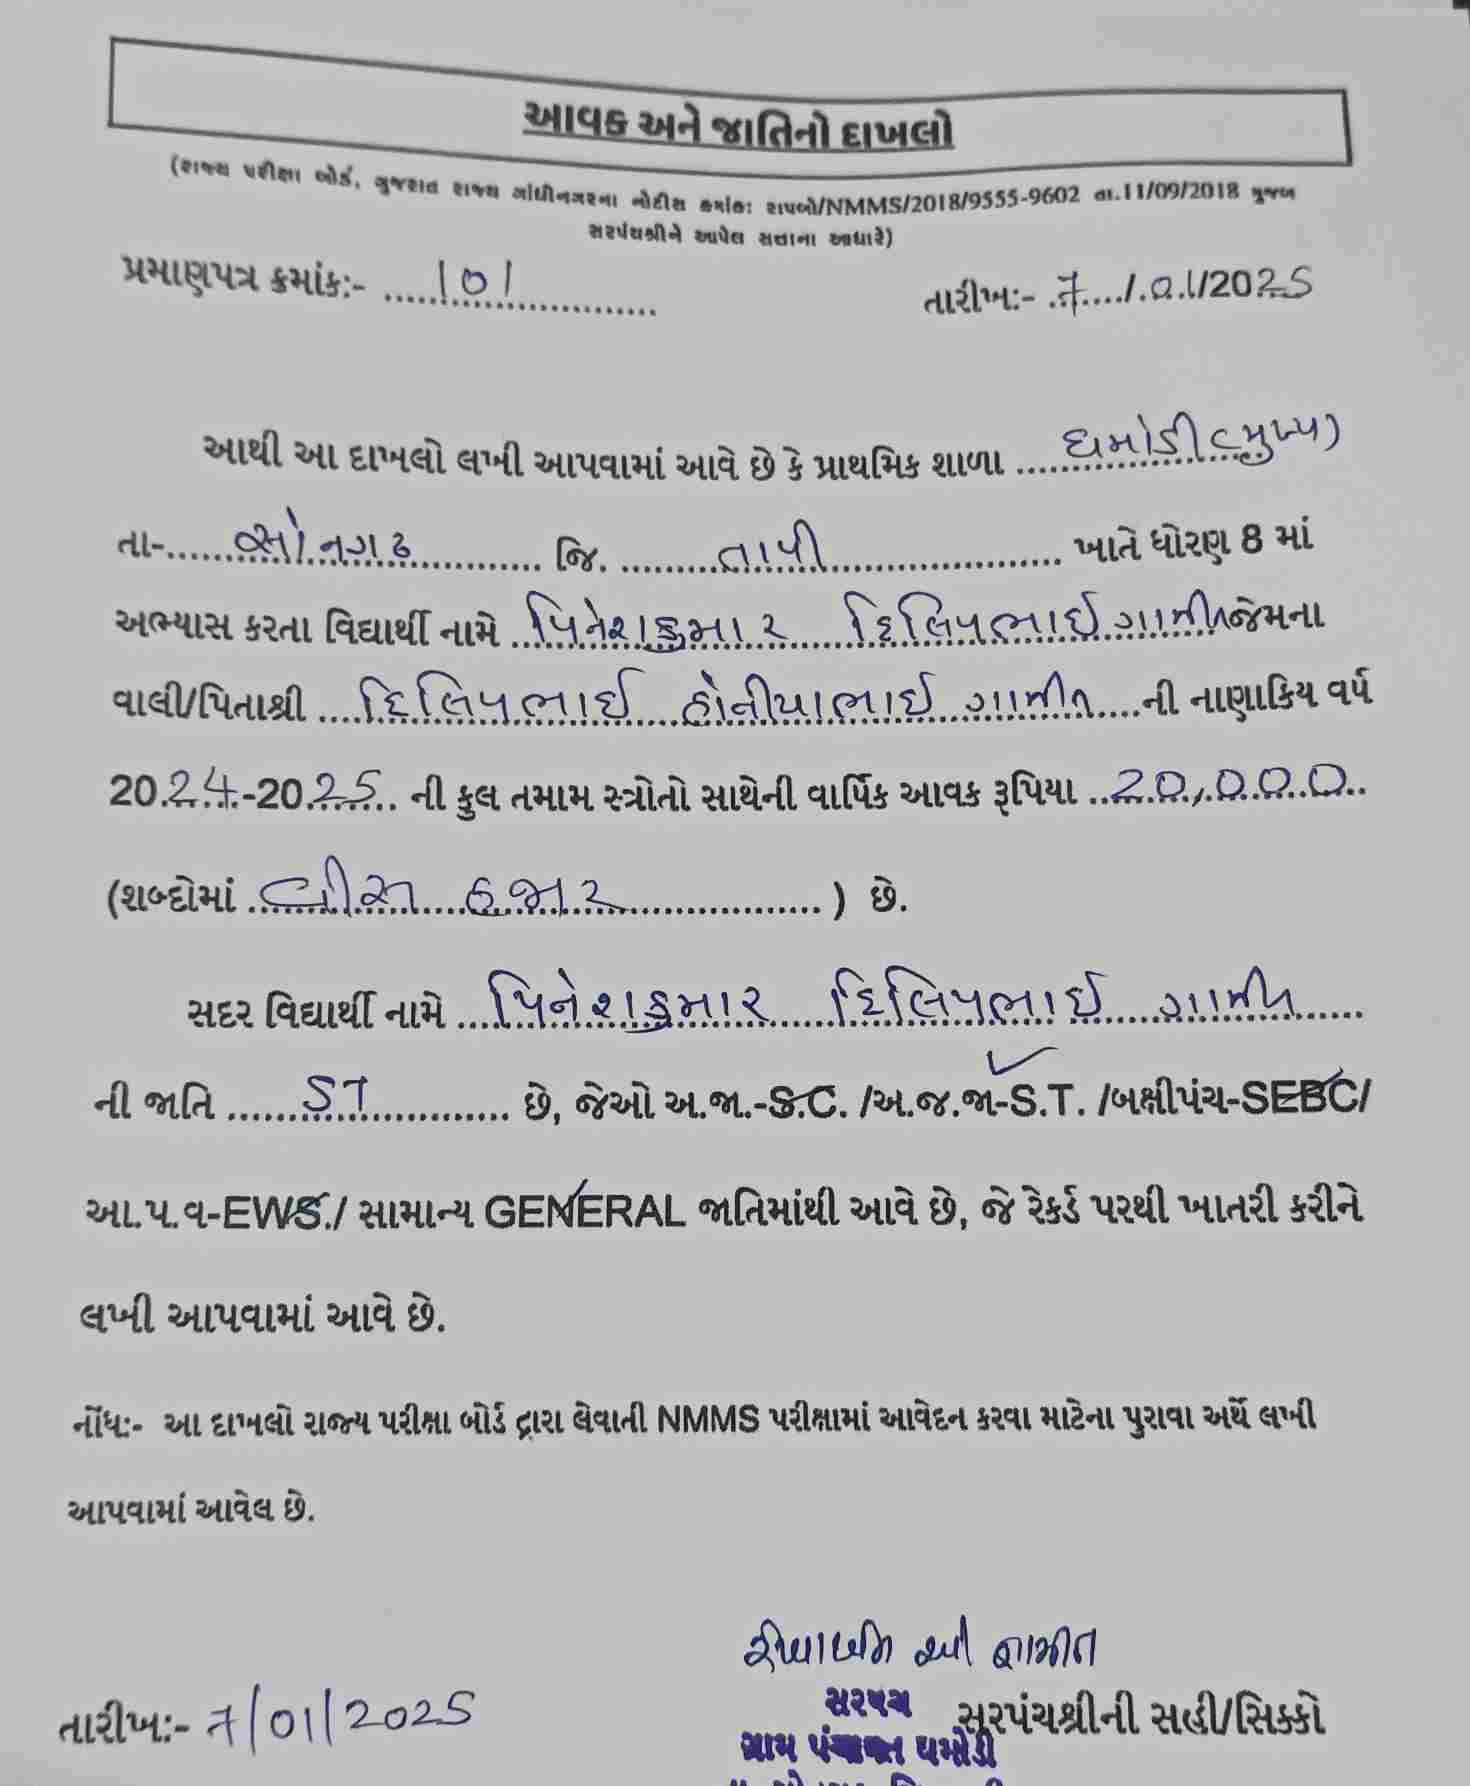 આવક અને જાતિનો દાખલો
(રાજ્ય પરીક્ષા બોર્ડ, ગુજરાત રાજ્ય ગાંધીનગરના નોટીસ ક્રમાંક: રાપબો/NMMS/2018/9555-9602 તા.11/09/2018 મુજબ
સરપંચશ્રીને આપેલ સત્તાના આધારે)
પ્રમાણપત્ર ક્રમાંક:- 101
તારીખ:- 7/01/2025
આથી આ દાખલો લખી આપવામાં આવે છે કે પ્રાથમિક શાળા ઘમોડી (મુખ્ય)
તા-સોનગઢ જિ. તાપી ખાતે ધોરણ 8 માં
અભ્યાસ કરતા વિદ્યાર્થી નામે પિનેશકુમાર દિલિપભાઈ ગામીત જેમના
વાલી/પિતાશ્રી દિલિપભાઈ હોનીયાભાઈ ગામીત ની નાણાકિય વર્ષ
2024-2025 ની કુલ તમામ સ્ત્રોતો સાથેની વાર્ષિક આવક રૂપિયા 20,000
(શબ્દોમાં વીસ હજાર) છે.
સદર વિદ્યાર્થી નામે પિનેશકુમાર દિલિપભાઈ ગામીત
ની જાતિ ST છે, જેઓ અ.જા.-S.C. /અ.જ.જા-S.T. /બક્ષીપંચ-SEBC/
આ.પ.વ-EWS./ સામાન્ય GENERAL જાતિમાંથી આવે છે, જે રેકર્ડ પરથી ખાતરી કરીને
લખી આપવામાં આવે છે.
નોંધ:- આ દાખલો રાજ્ય પરીક્ષા બોર્ડ દ્વારા લેવાતી NMMS પરીક્ષામાં આવેદન કરવા માટેના પુરાવા અર્થે લખી
આપવામાં આવેલ છે.
ગામીત
તારીખ:- 7/01/2025
સરપંચ
સરપંચશ્રીની સહી/સિક્કો
ગ્રામ પંચાયત ઘમોડી